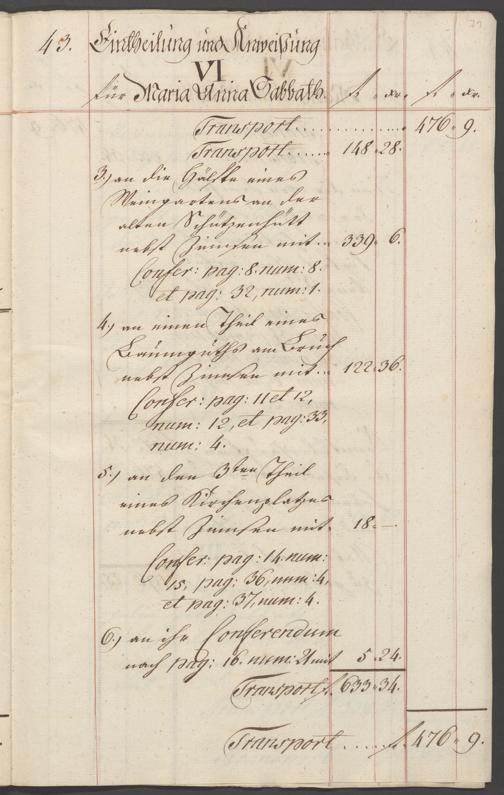 43. Eintheilung und Anweisung
VI IV
für Maria Anna Sabbath. f. xr. f. xr.
Transport ............ 476. 9.
Transport ...... 148. 28.
3.) an die Hälfte eines
Weingartens an der
alten Schützenhütt
nebst Zinnsen mit .. 339. 6.
Confer: pag: 8. num: 8.
et pag: 32, num: 1.
4.) an einen Theil eines
Baumguths am Bruch
nebst Zinnsen mit ... 122. 36.
Confer: pag: 11 et 12,
num: 12, et pag: 33,
num: 4.
5.) an den 3ten Theil
eines Kirchenplatzes
nebst Zinnsen mit. 18. —.
Confer: pag: 14. num:
15, pag: 36, num: 4,
et pag: 37, num: 4.
6.) an ihr Conferendum
nach pag: 16. num: 21 mit 5. 24.
Transport f. 633. 34.
Transport ..... f. 476. 9.